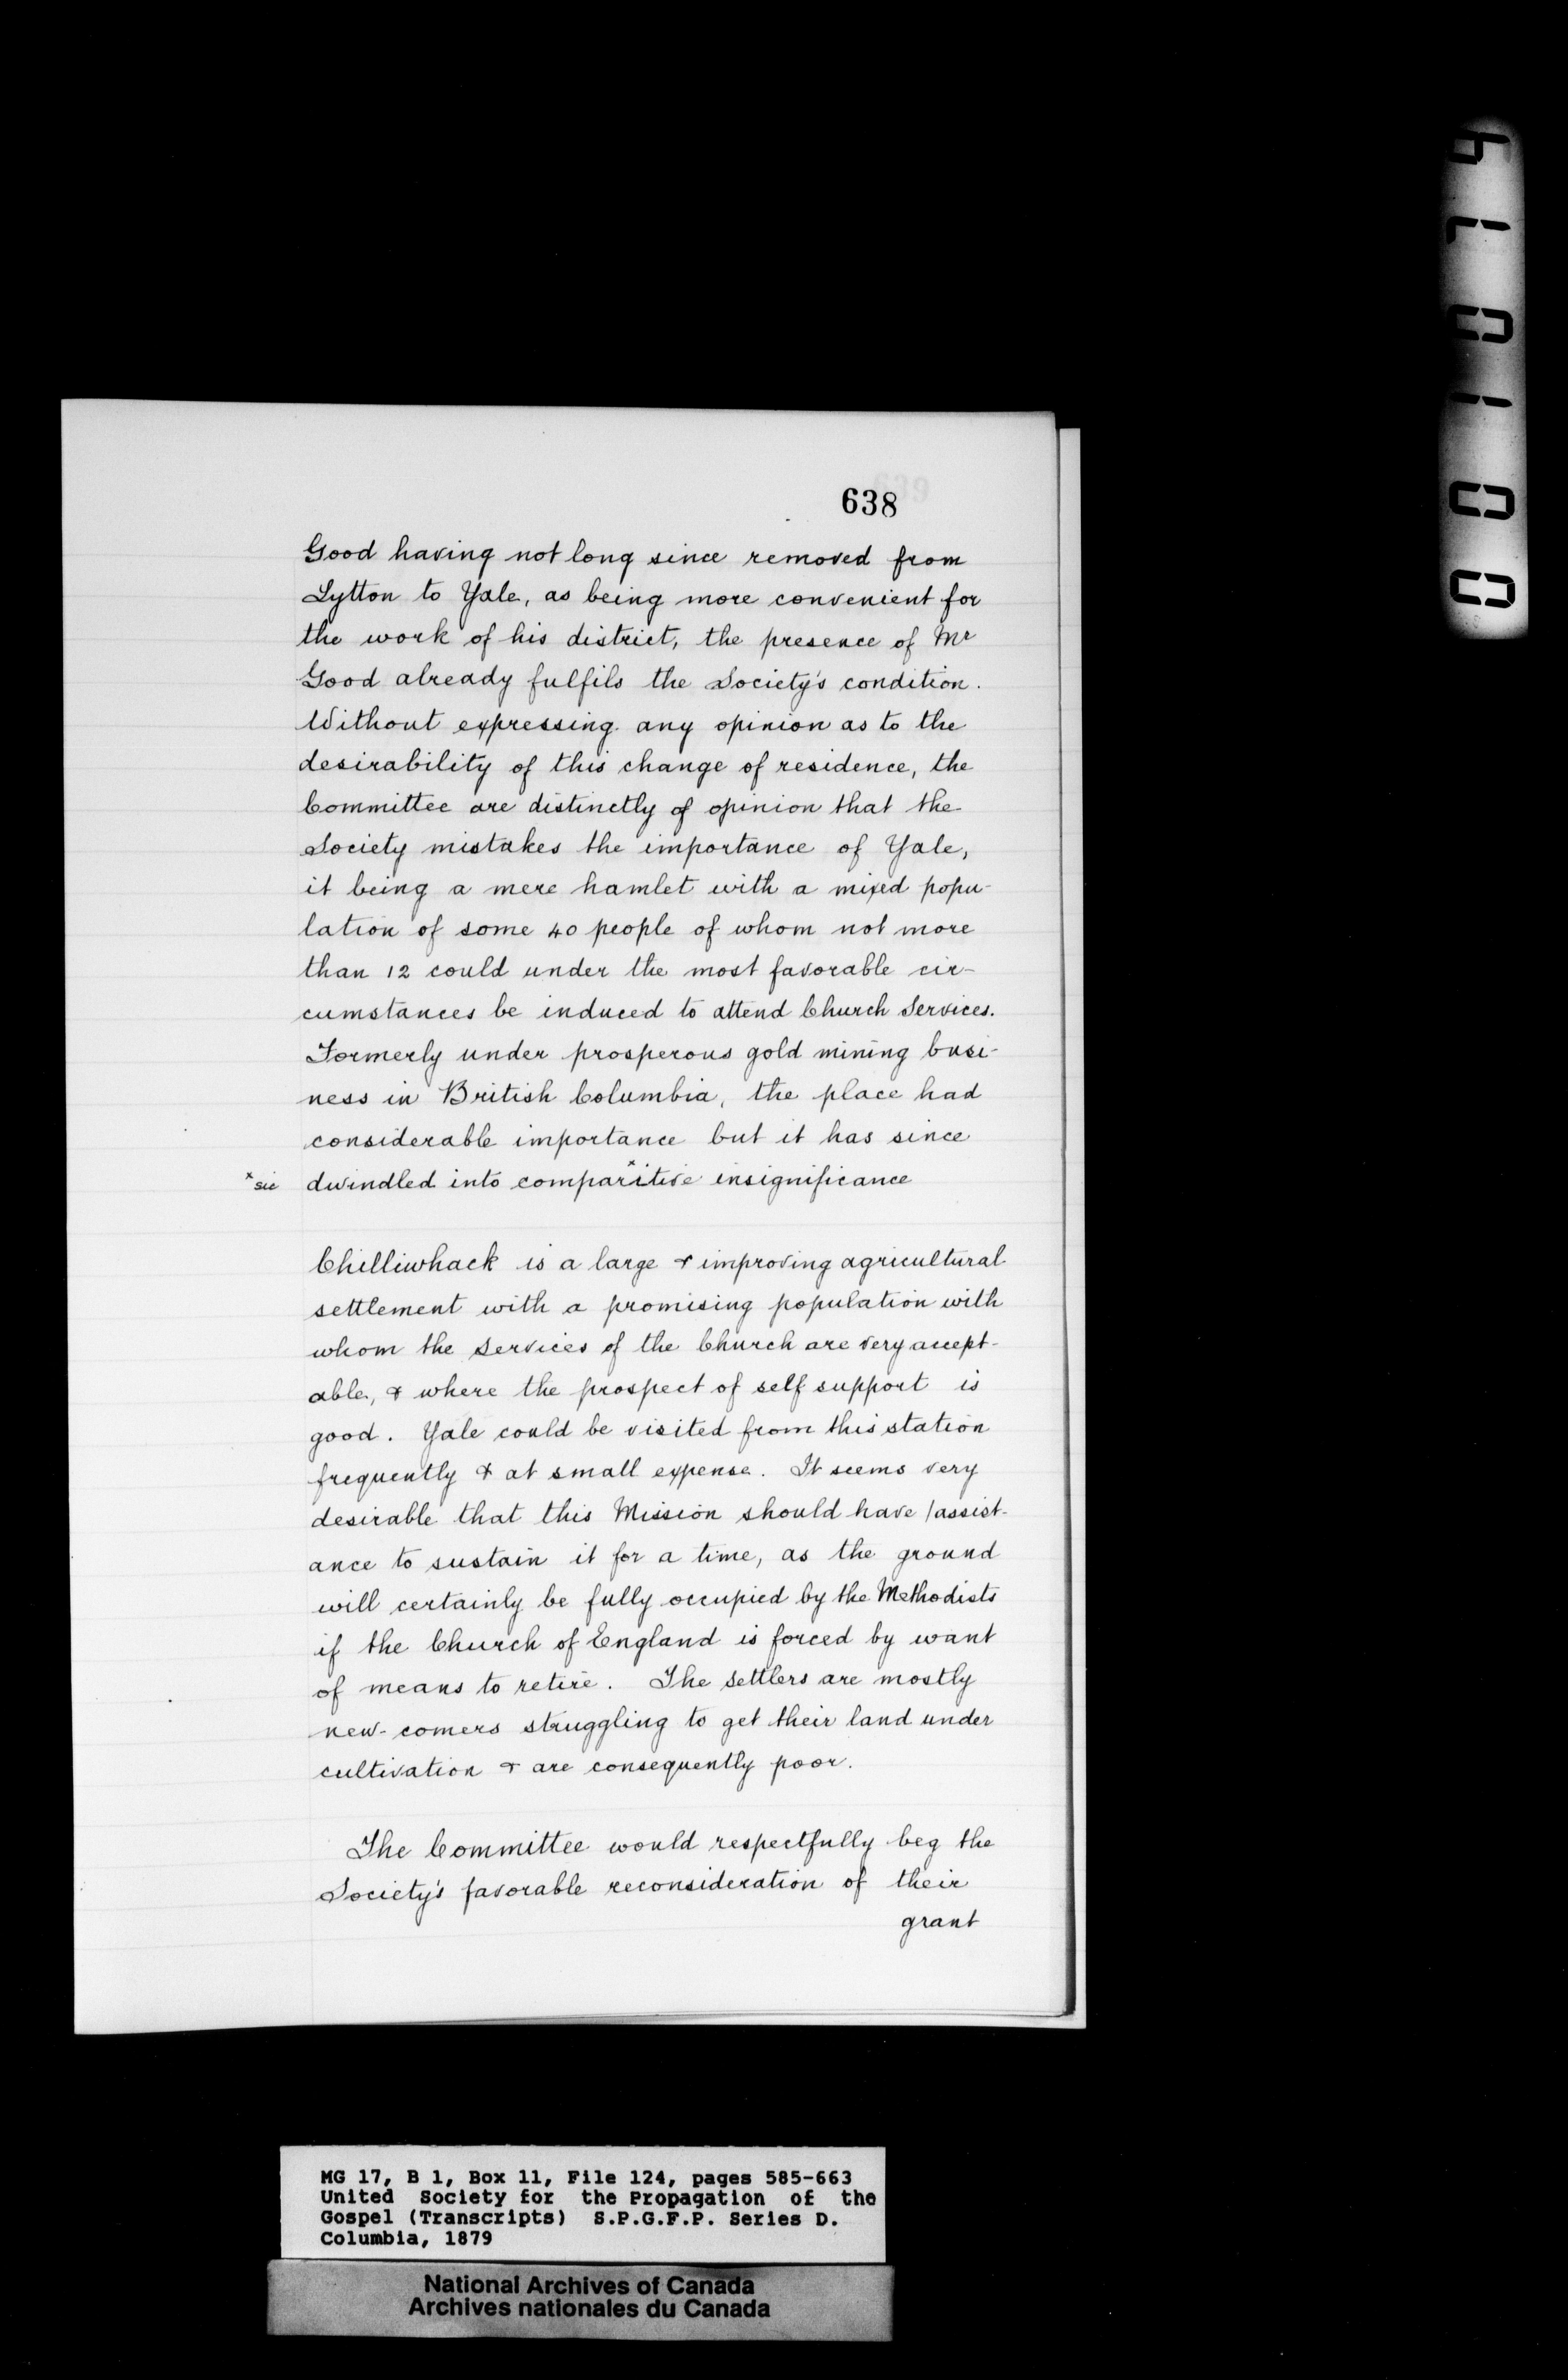 638
Good having not long since removed from
Lytton to Yale, as being more convenient for
the work of his district, the presence of Mr
Good already fulfils the Society's condition.
Without expressing any opinion as to the
desirability of this change of residence, the
Committee are distinctly of opinion that the
Society mistakes the importance of Yale,
it being a mere hamlet with a mixed popu-
lation of some 40 people of whom not more
than 12 could under the most favorable cir-
cumstances be induced to attend Church Services.
Formerly under prosperous gold mining busi-
ness in British Columbia, the place had
considerable importance but it has since
x sic dwindled into comparxitive insignificance
Chilliwhack is a large & improving agricultural
settlement with a promising population with
whom the services of the Church are very accept-
able, & where the prospect of self support is
good. Yale could be visited from this station
frequently & at small expense. It seems very
desirable that this Mission should have /assist-
ance to sustain it for a time, as the ground
will certainly be fully occupied by the Methodists
if the Church of England is forced by want
of means to retire. The settlers are mostly
new-comers struggling to get their land under
cultivation & are consequently poor.
The Committee would respectfully beg the
Society's favorable reconsideration of their
grant
MG 17, B 1, Box 11, File 124, pages 585-663
United Society for the Propagation of the
Gospel (Transcripts) S.P.G.F.P. Series D.
Columbia, 1879
National Archives of Canada
Archives nationales du Canada